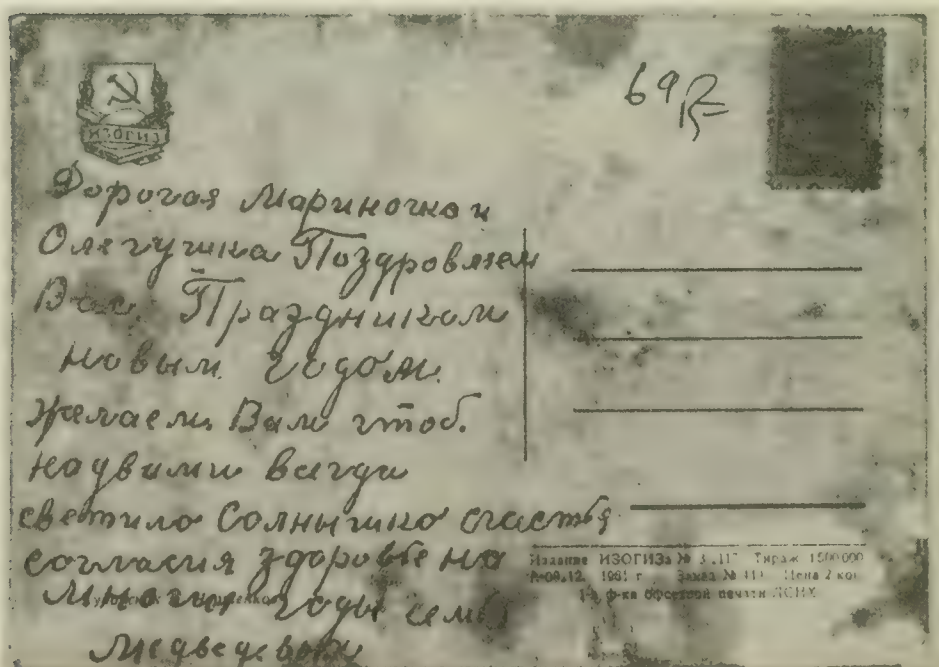 ИЗОГИЗ
69
Дорогая Мариночка и
Олегушка Поздровляем
Вас Праздником
новым годом.
Желаем Вам чтоб.
надвами всегда
светило Солнышко счастья
согласия здоровье на
многие годы семья
Медведевых
Издание ИЗОГИЗа № Тираж 1500000
1961 г. Заказ № Цена 2 коп
1-я ф-ка офсетной печати ЛСНХ